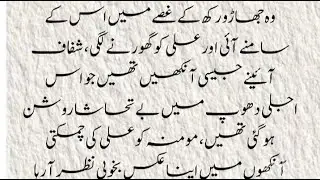 وہ جھاڑو رکھ کے غصے میں اس کے
سامنے آئی اور علی کو گھورنے لگی، شفاف
آئینے جیسی آنکھیں تھیں جو اس
اجلی دھوپ میں بے تحاشا روشن
ہو گئی تھیں، مومنہ کو علی کی چمکتی
آنکھوں میں اپنا عکس بخوبی نظر آ رہا